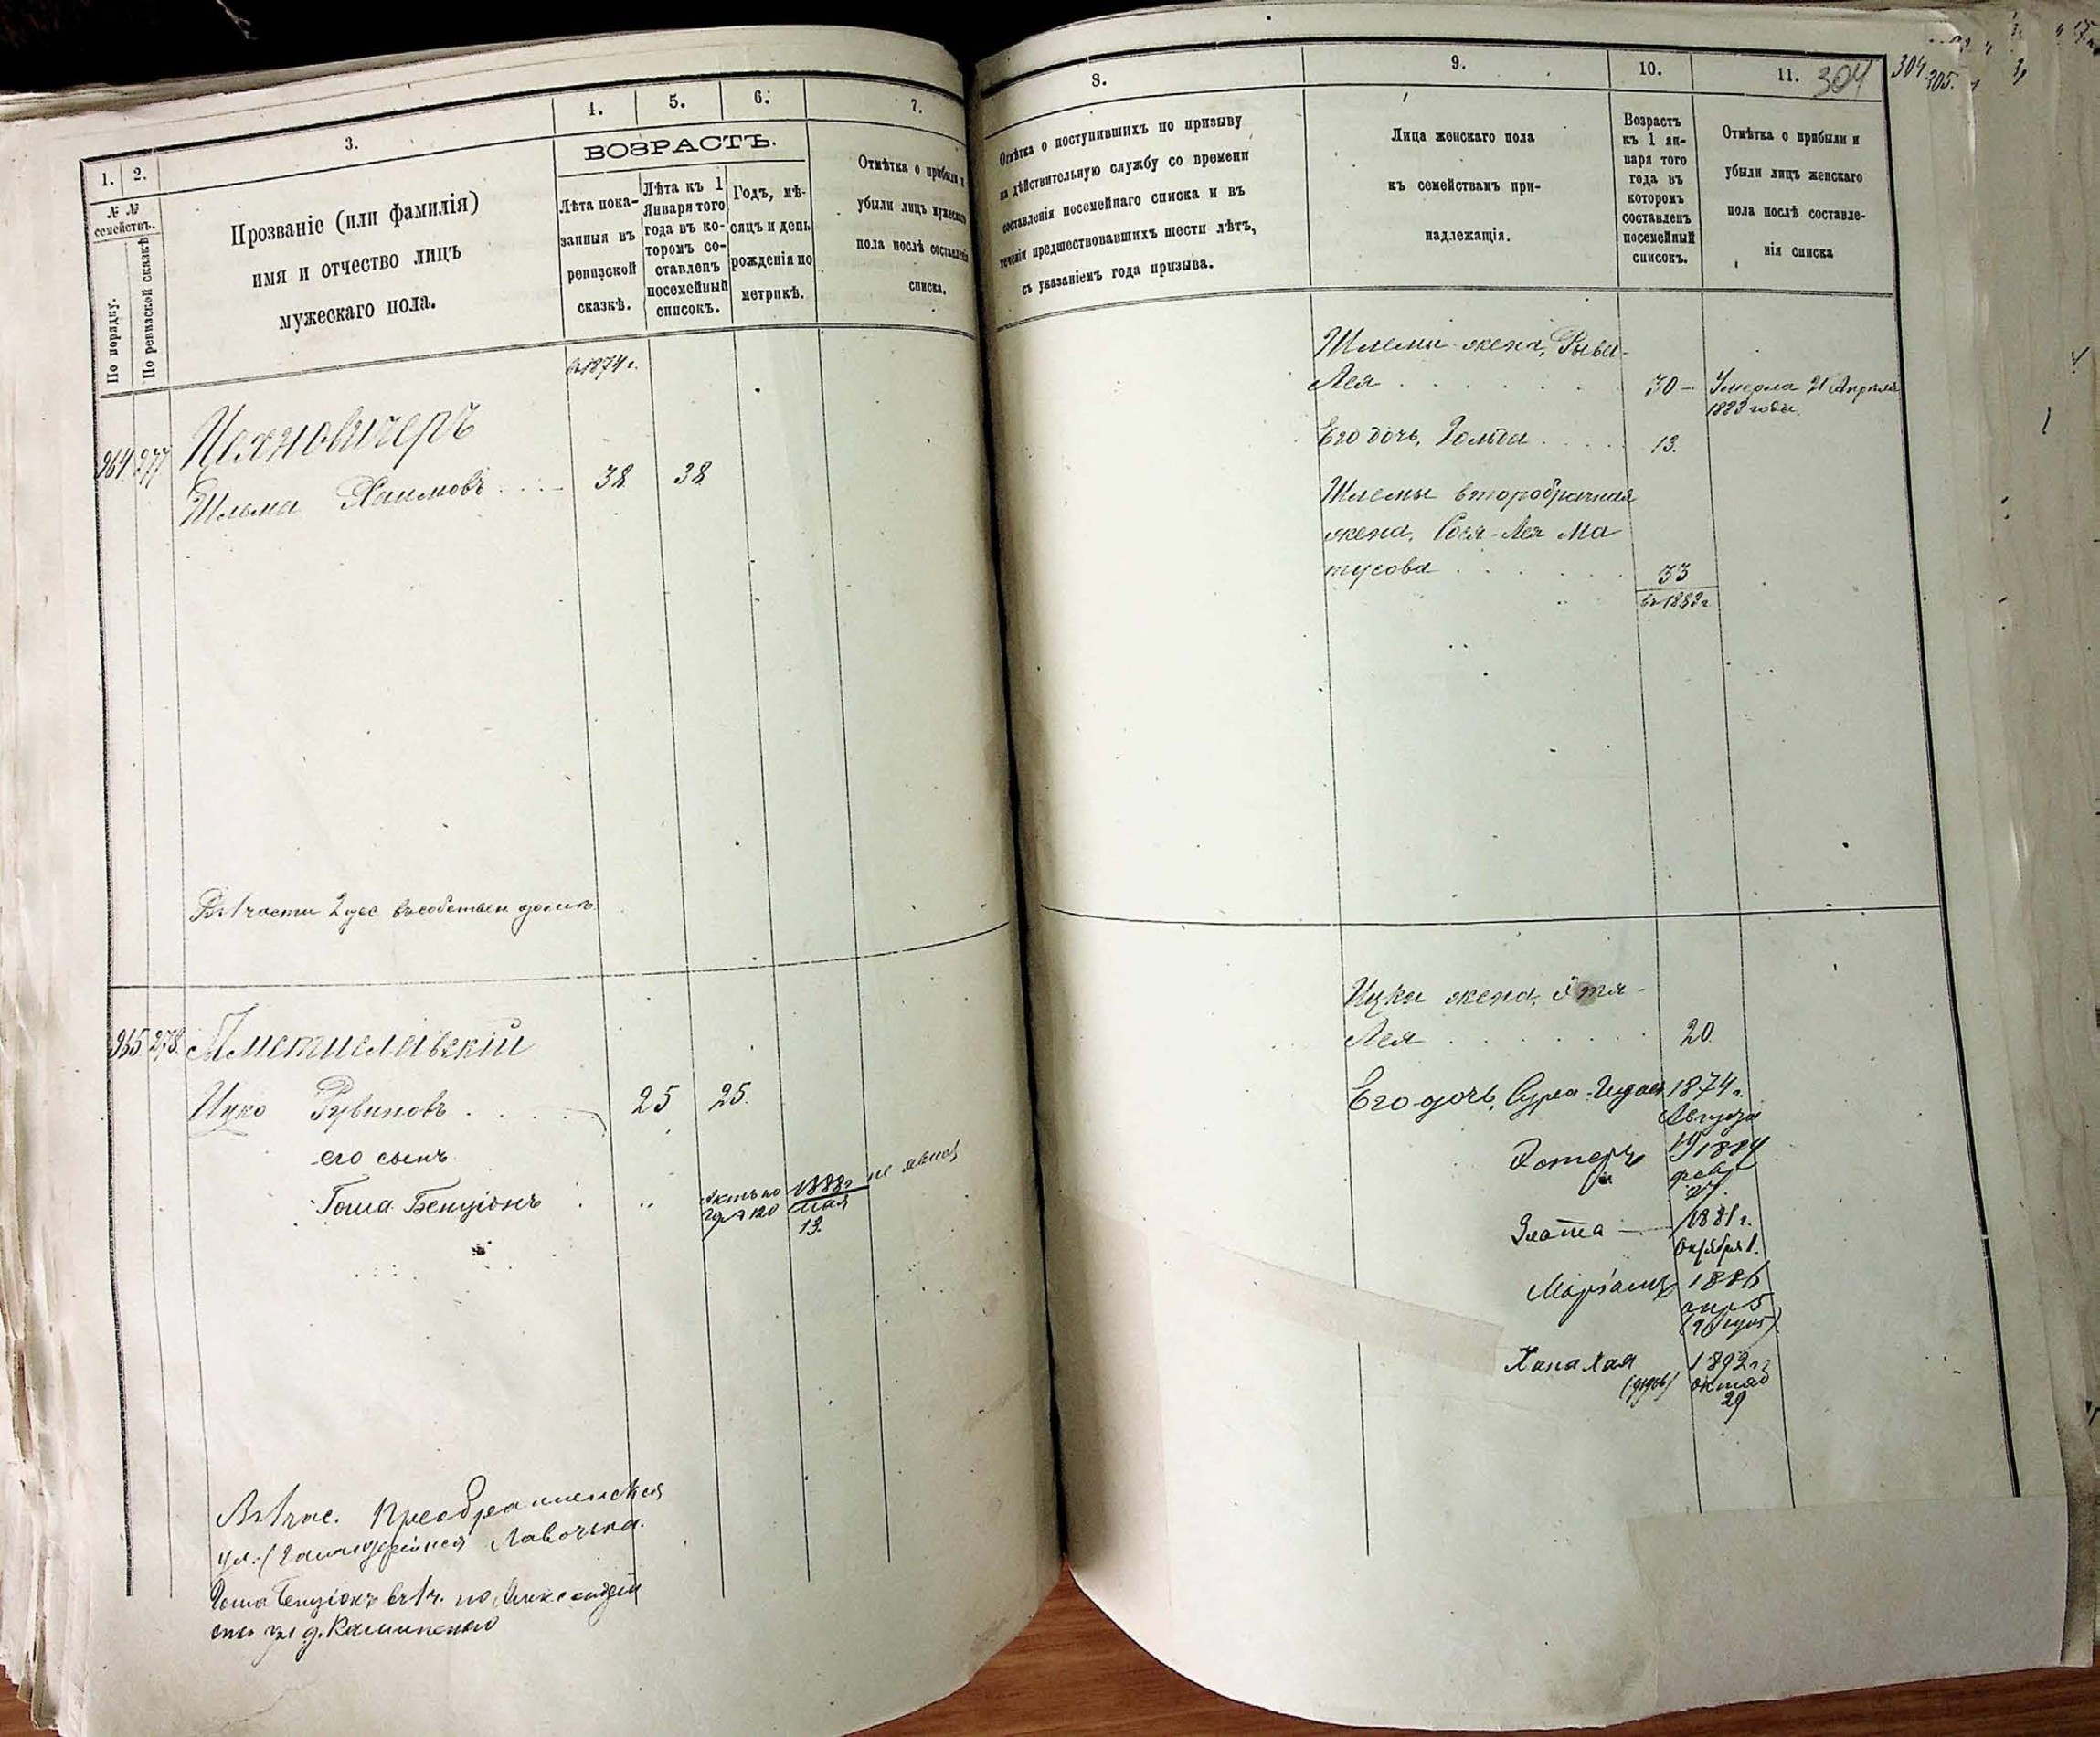 1.
2.
3.
4.
5.
6.
7.
№ №
семействъ.
По порядку.
По ревизской сказкѣ
Прозваніе (или фамилія)
имя и отчество лицъ
мужескаго пола.
ВОЗРАСТЪ.
Лѣта пока-
занныя въ
ревизской
сказкѣ.
Лѣта къ 1
Января того
года въ ко-
торомъ со-
ставленъ
посемейный
списокъ.
Годъ, мѣ-
сяцъ и день
рожденія по
метрикѣ.
Отмѣтка о прибыли и
убыли лицъ мужескаго
пола послѣ составленія
списка.
въ 1874 г.
964 277
Цехновичеръ
Шльома Хаимовъ
38
38
Въ 1 части 2 уес. въ собствен домѣ
965 278
Мстиславскій
Ицко Рувиновъ
25
25
его сынъ
Гоша Бенціонъ
1888 г
мая
13
не явил
Въ 1 час. Преображенская
ул. (Галантерейная Лавочка.
Гоша Бенціонъ въ 1 ч. по Александ
д.
8.
9.
10.
11.
304
304
305.
Отмѣтка о поступившихъ по призыву
на дѣйствительную службу со времени
составленія посемейнаго списка и въ
теченіи предшествовавшихъ шести лѣтъ,
съ указаніемъ года призыва.
Лица женскаго пола
къ семействамъ при-
надлежащія.
Возрастъ
къ 1 ян-
варя того
года въ
которомъ
составленъ
посемейный
списокъ.
Отмѣтка о прибыли и
убыли лицъ женскаго
пола послѣ составле-
нія списка
Шлемы жена, Рыва-
Лея
30
Умерла 21 Апрѣля
1883 года.
Его дочь, Гольда
13.
Шлемы второбрачная
жена, Рося-Лея Ма
тусова
33
въ 1883 г
Ицки жена, Этя-
Лея
20.
Его дочь, Сура-
1874 г.
Августа
19
Эстеръ
1884
февр
27.
Злота
1881 г.
Октября 1.
Маріамъ
1886
апр 5
Хана Хая
1892 г
октяб
29